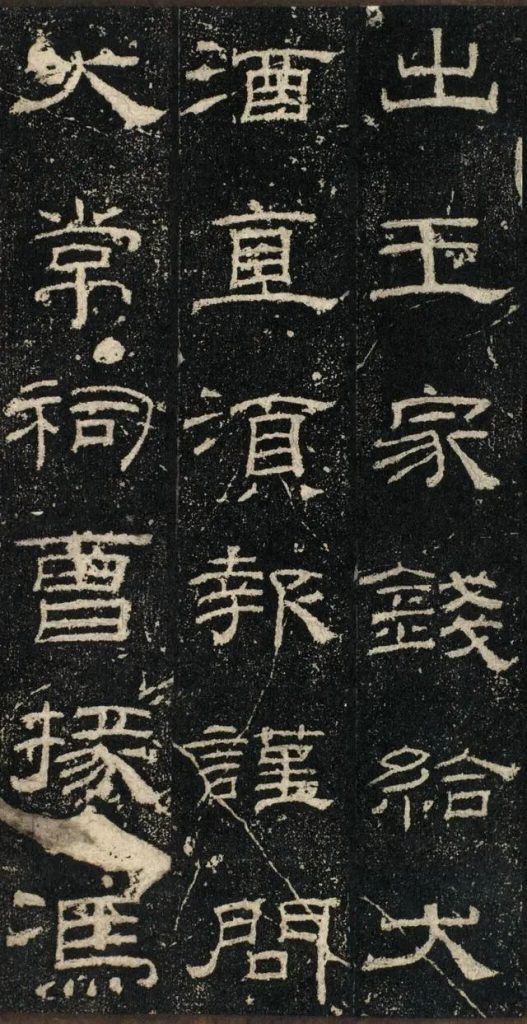 出王家錢給大
酒直湏報謹問
大常祠曹掾馮